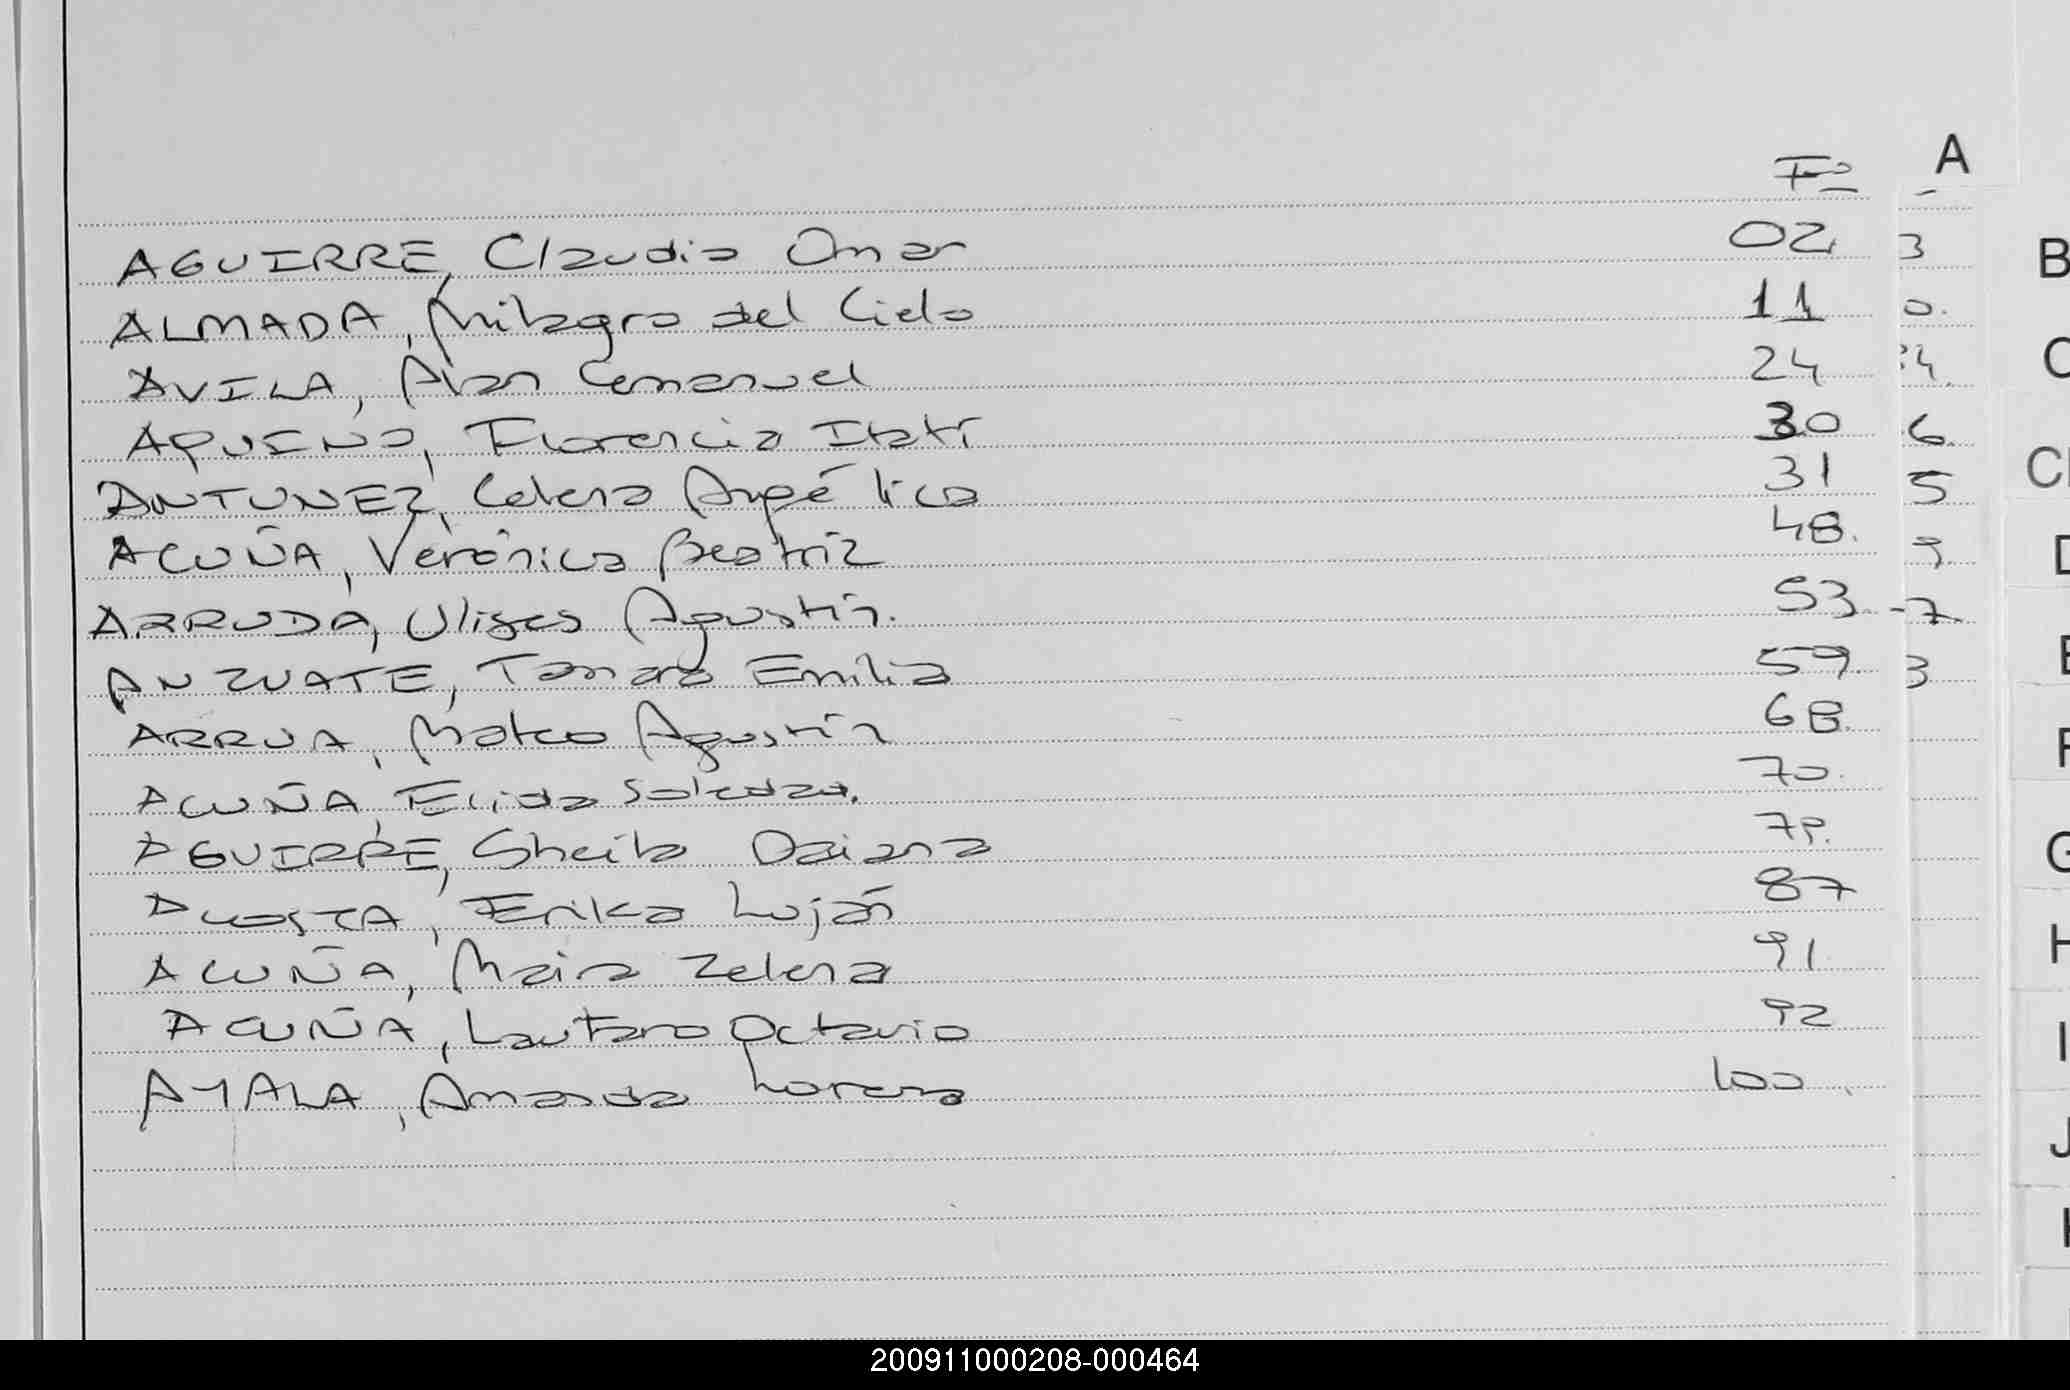 Fº A
AGUIRRE, Claudio Omar 02
ALMADA, Milagro del Cielo 11
AVILA, Alan Emanuel 24
AQUINO, Florencia Itatí 30
ANTUNEZ, Celena Angélica 31
ACUÑA, Verónica Beatriz 48.
ARRUDA, Ulises Agustín. 53
ANZUATE, Tamara Emilia 59
ARRUA, Mateo Agustín 68.
ACUÑA, Elida Soledad. 70.
AGUIRRE, Sheila Daiana 79.
ACOSTA, Erika Luján 87
ACUÑA, Maia Zelena 91
ACUÑA, Lautaro Octavio 92
AYALA, Amanda Lorena 100.
B
C
D
G
H
I
J
200911000208-000464